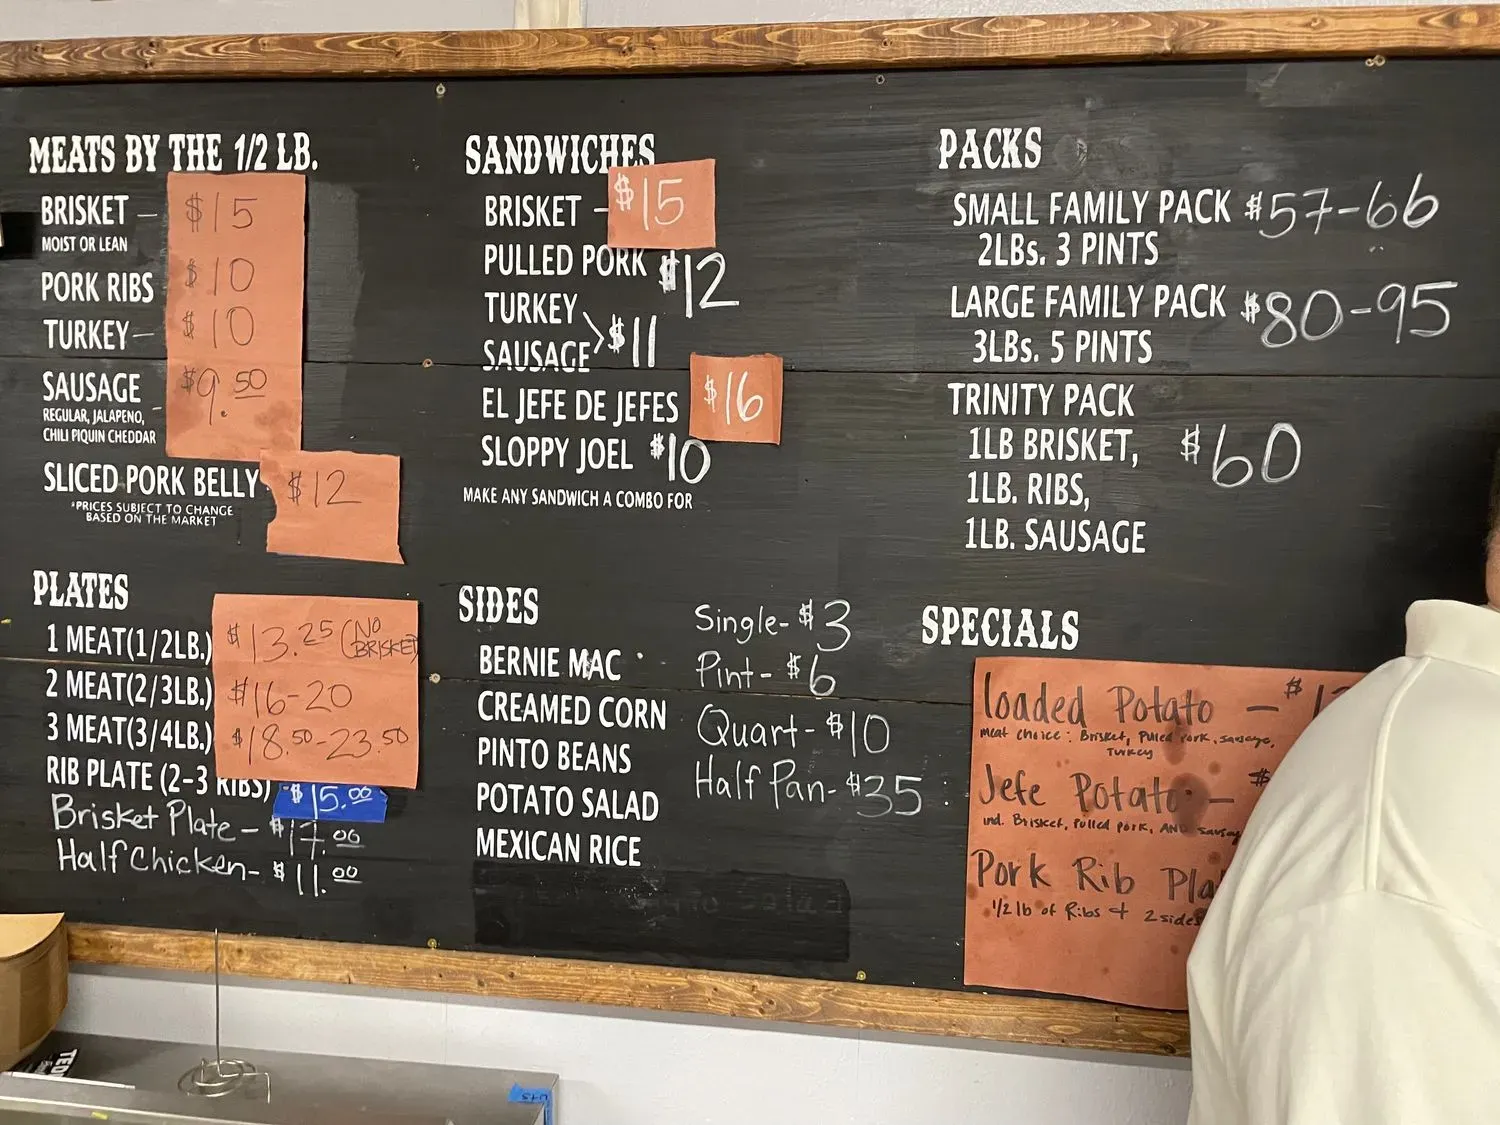 MEATS BY THE 1/2 LB.
BRISKET — $15
MOIST OR LEAN
PORK RIBS $10
TURKEY — $10
SAUSAGE — $9.50
REGULAR, JALAPENO,
CHILI PIQUIN CHEDDAR
SLICED PORK BELLY $12
*PRICES SUBJECT TO CHANGE
BASED ON THE MARKET
PLATES
1 MEAT(1/2LB.) $13.25 (NO BRISKET)
2 MEAT(2/3LB.) $16-20
3 MEAT(3/4LB.) $18.50-23.50
RIB PLATE (2-3 RIBS) $15.00
Brisket Plate - $17.00
Half Chicken - $11.00
SANDWICHES
BRISKET - $15
PULLED PORK $12
TURKEY
SAUSAGE > $11
EL JEFE DE JEFES $16
SLOPPY JOEL $10
MAKE ANY SANDWICH A COMBO FOR
SIDES
BERNIE MAC
CREAMED CORN
PINTO BEANS
POTATO SALAD
MEXICAN RICE
Single - $3
Pint - $6
Quart - $10
Half Pan - $35
PACKS
SMALL FAMILY PACK $57-66
2LBs. 3 PINTS
LARGE FAMILY PACK $80-95
3LBs. 5 PINTS
TRINITY PACK
1LB BRISKET, $60
1LB. RIBS,
1LB. SAUSAGE
SPECIALS
loaded Potato — $
meat choice: Brisket, Pulled Pork, sausage,
Turkey
Jefe Potato — $
ind. Brisket, Pulled pork, AND
Pork Rib
1/2 lb of Ribs + 2 sides